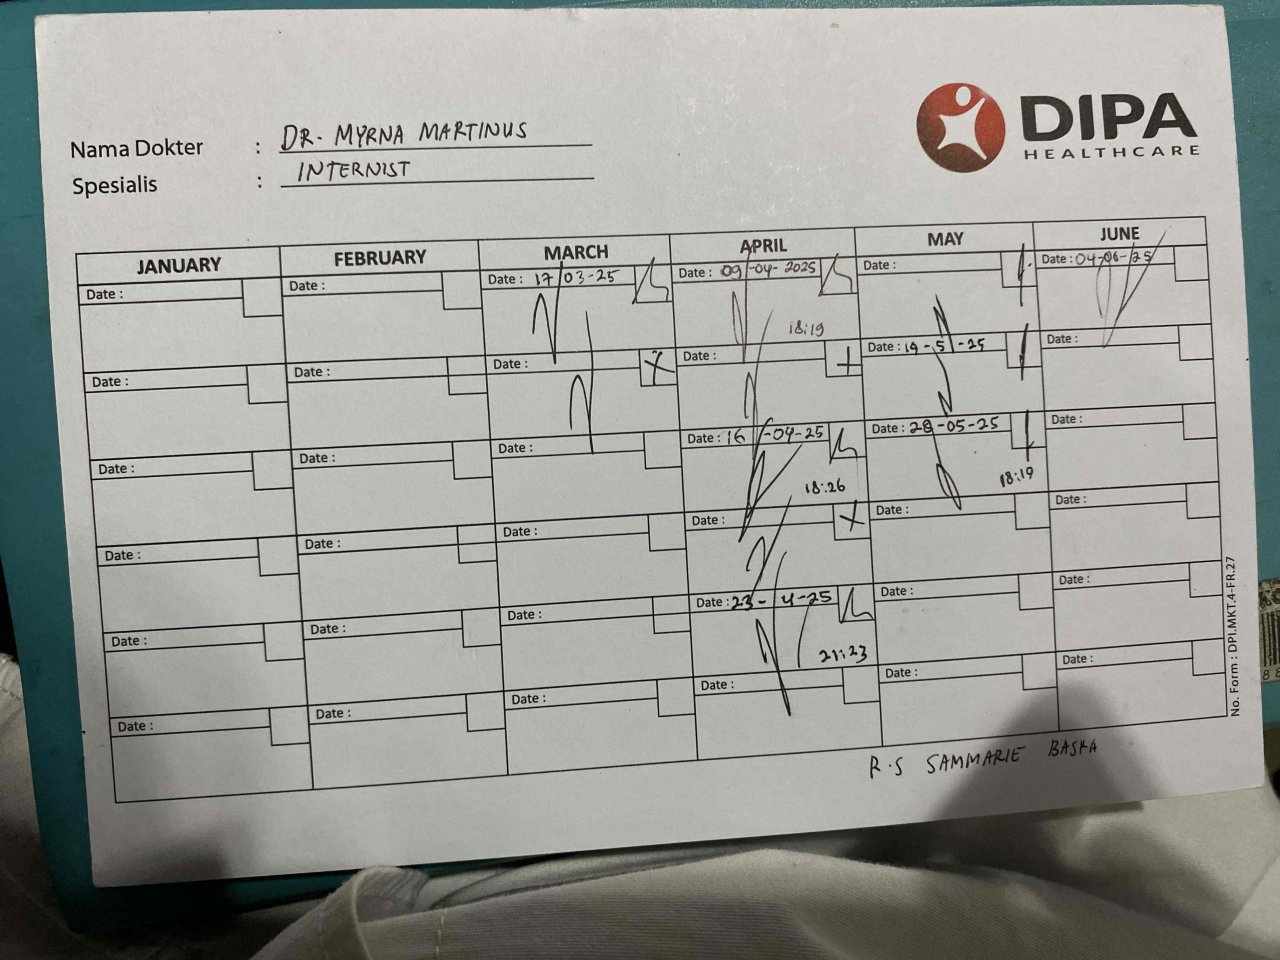 DIPA
HEALTHCARE
Nama Dokter : DR. MYRNA MARTINUS
Spesialis : INTERNIST
JANUARY FEBRUARY MARCH APRIL MAY JUNE
Date : Date : Date : 17-03-25 Date : 09-04-2025 Date : Date : 04-06-25
18:19
Date : Date : Date : Date : Date : 19-5-25 Date :
Date : Date : Date : Date : 16-04-25 Date : 28-05-25 Date :
18:26 18:19
Date : Date : Date : Date : Date : Date :
Date : Date : Date : Date : 23-4-25 Date : Date :
21:23
Date : Date : Date : Date : Date : Date :
No. Form : DPI.MKT.4-FR.27
R.S SAMMARIE BASRA